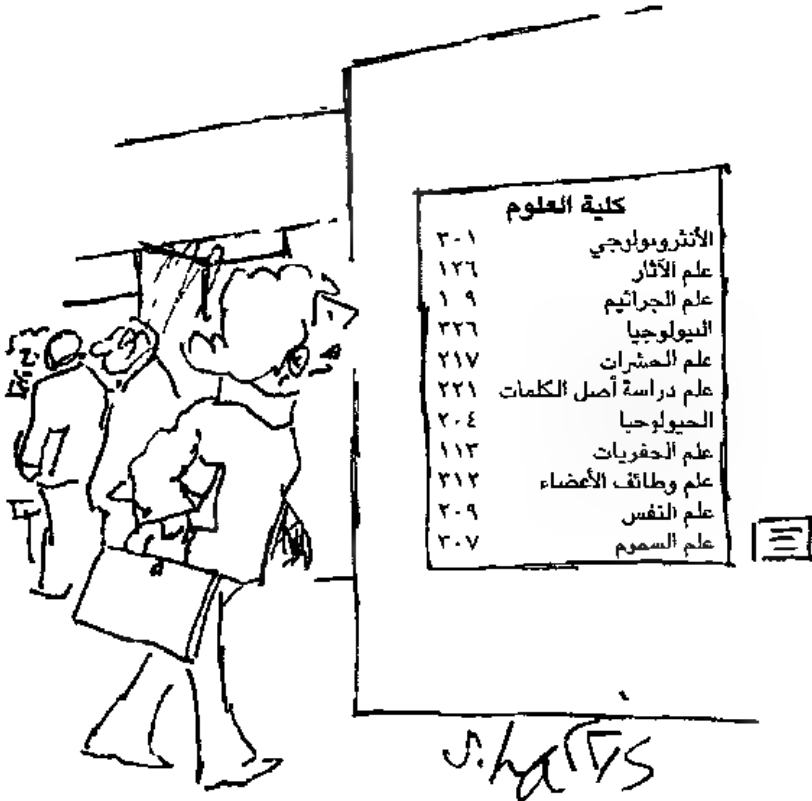 كلية العلوم
الأنثروبولوجي ٣٠١
علم الآثار ١٢٦
علم الجراثيم ١٠٩
البيولوجيا ٣٢٦
علم الحشرات ٢١٧
علم دراسة أصل الكلمات ٢٢١
الجيولوجيا ٢٠٤
علم الحفريات ١١٣
علم وظائف الأعضاء ٣١٢
علم النفس ٢٠٩
علم السموم ٣٠٧
S. harris